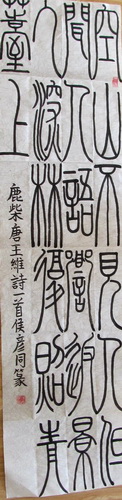 空山不見人但
聞人語響返景
入深林復照青
薹上
鹿柴唐王維詩一首侯彦同篆